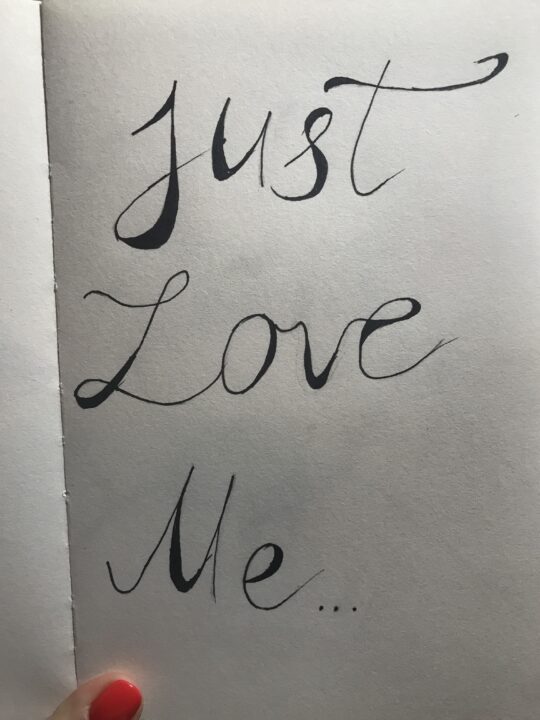 Just
Love
Me...